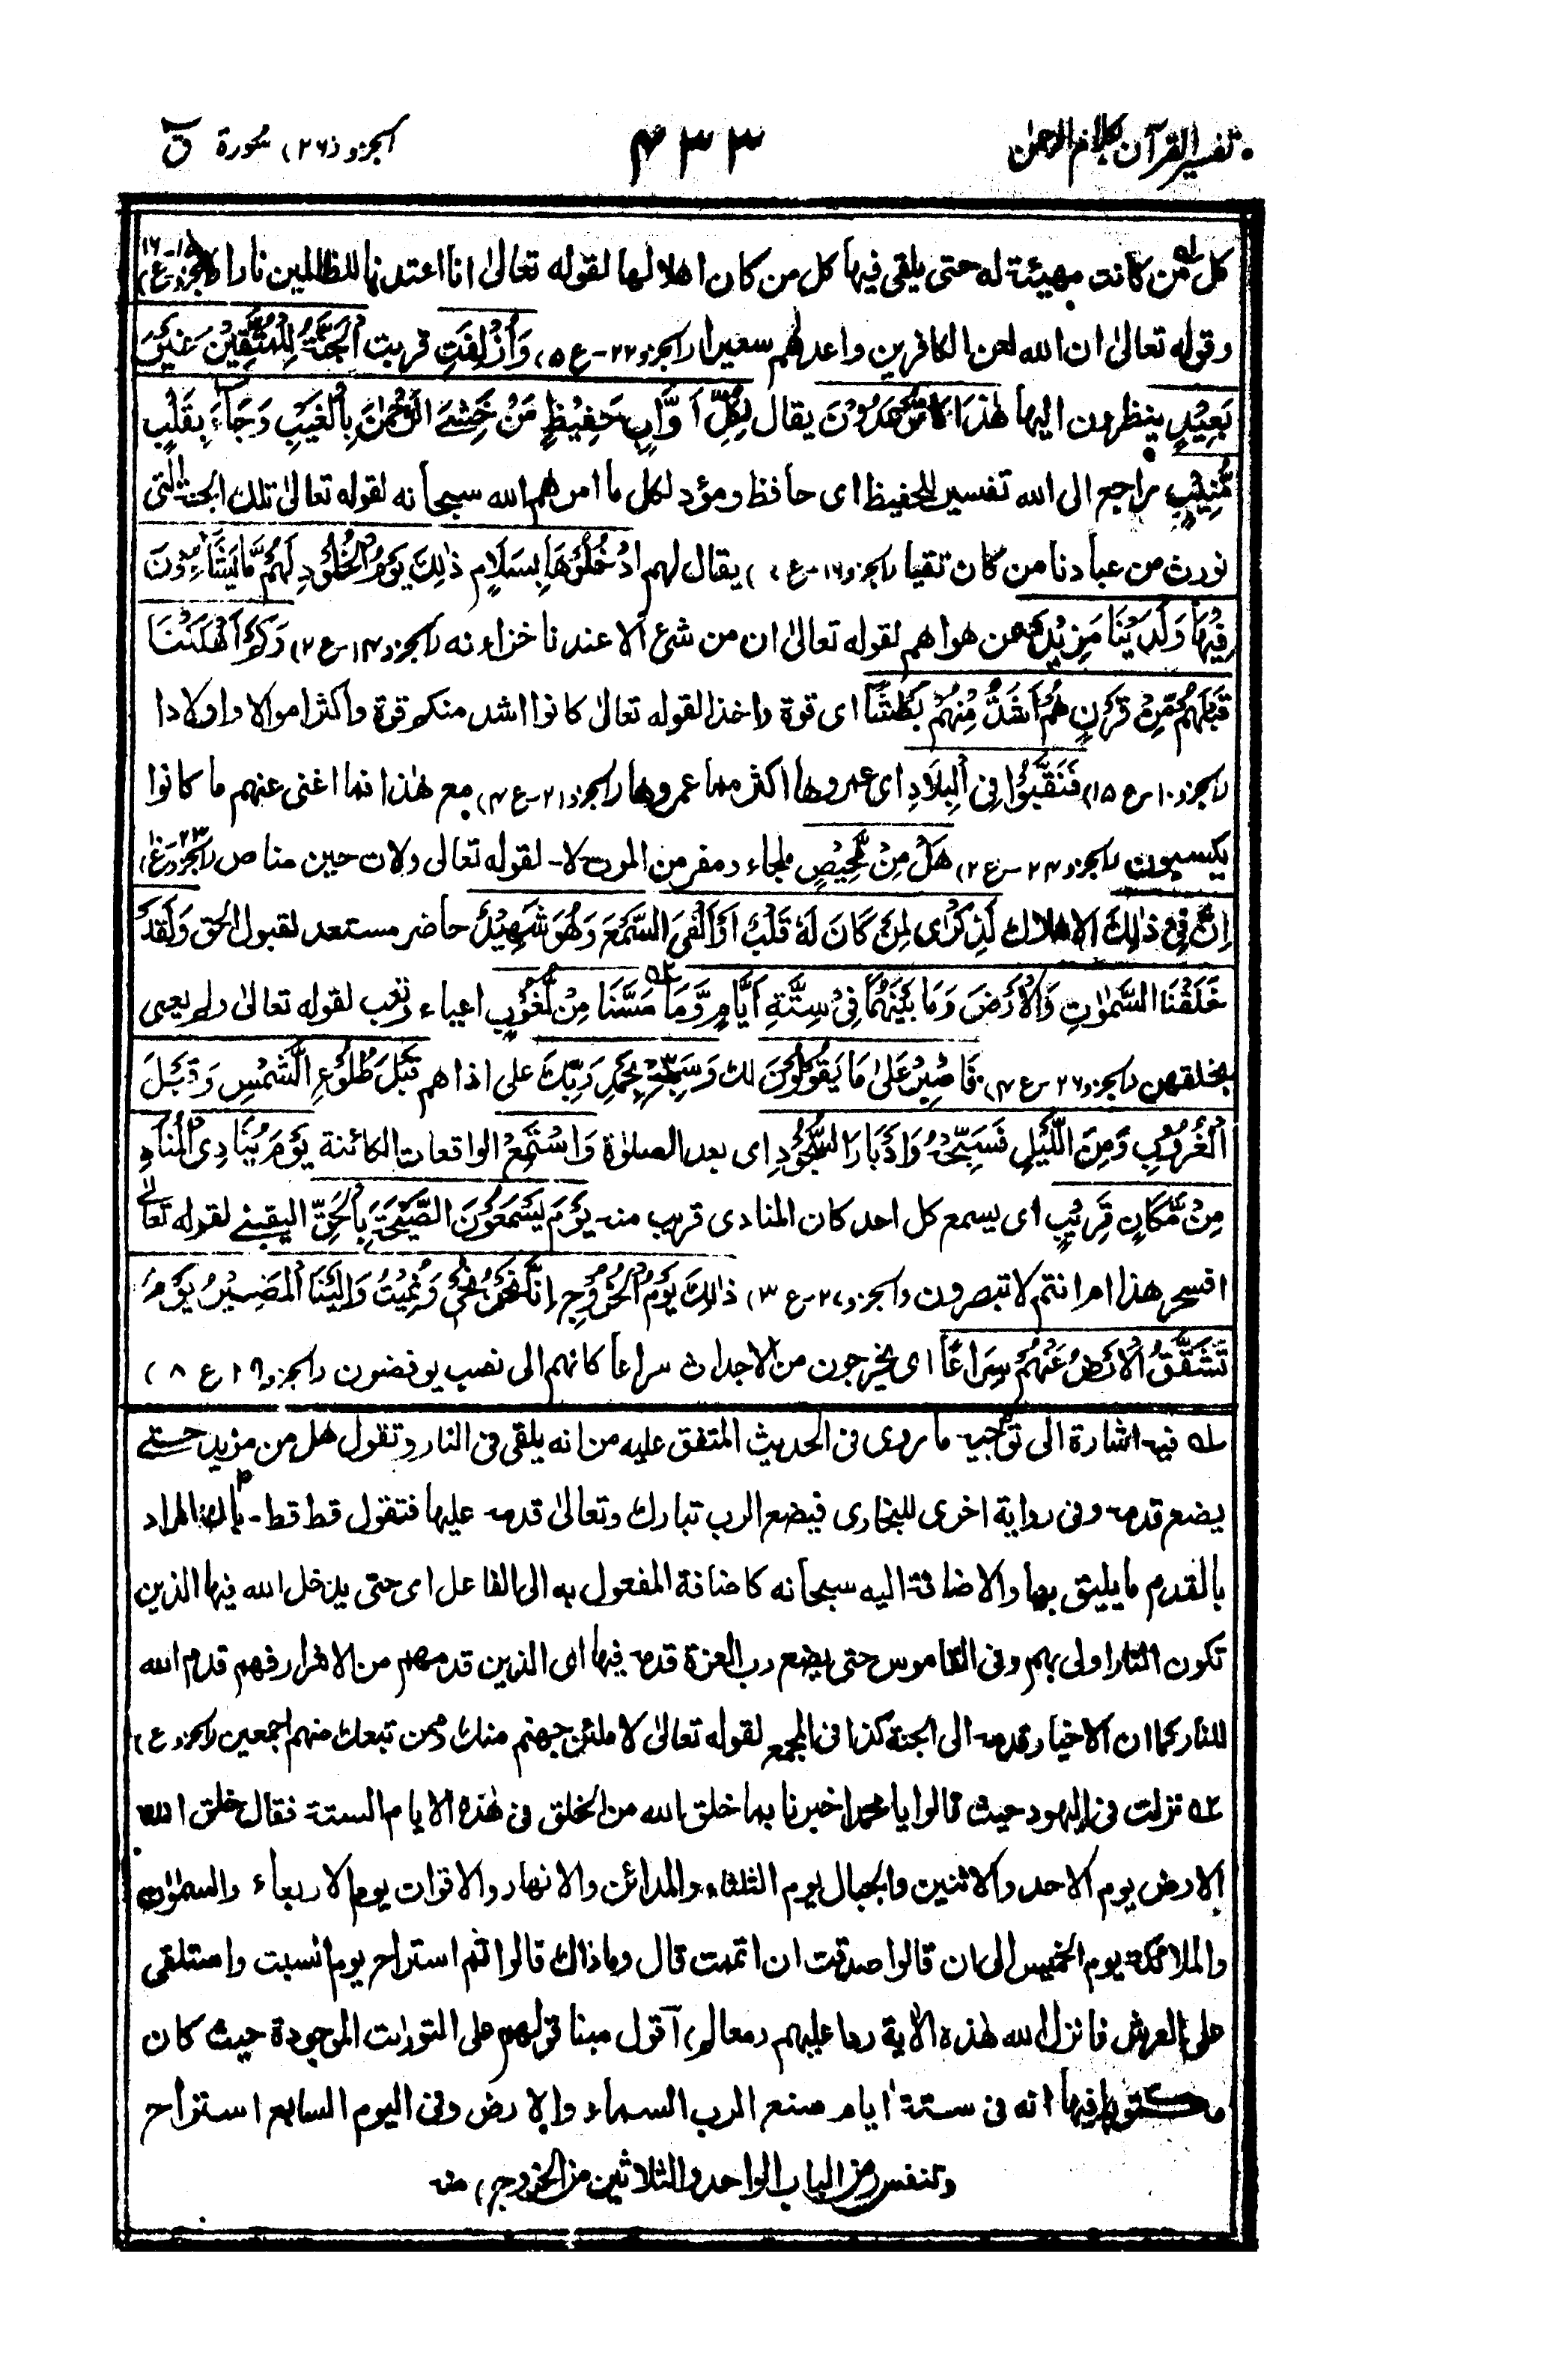 تفسير القرآن بكلام الرحمٰن
٤٣٣
الجزو (٢٦) سورة قٓ
كل من كانت مهيئة له حتى يلقى فيها كل من كان اهلا لها لقوله تعالىٰ انا اعتدنا للظالمين نارا (الجزو ١٥-ع ١٦)
وقوله تعالىٰ ان الله لعن الكافرين واعد لهم سعيرا (الجزو ٢٢-ع ٥) وَأُزْلِفَتِ قربت الْجَنَّةُ لِلْمُتَّقِيْنَ غَيْرَ
بَعِيْدٍ ينظرون اليها هٰذَا مَا تُوْعَدُوْنَ يقال لِكُلِّ أَوَّابٍ حَفِيْظٍ مَنْ خَشِيَ الرَّحْمٰنَ بِالْغَيْبِ وَجَآءَ بِقَلْبٍ
مُّنِيْبٍ راجع الى الله تفسير للحفيظ اى حافظ ومؤد لكل ما امرهم الله سبحانه لقوله تعالىٰ تلك الجنة التى
نورث من عبادنا من كان تقيا (الجزو ١٦-ع ٧) يقال لهم ادْخُلُوْهَا بِسَلَامٍ ذٰلِكَ يَوْمُ الْخُلُوْدِ لَهُمْ مَّا يَشَآءُوْنَ
فِيْهَا وَلَدَيْنَا مَزِيْدٌ من هواهم لقوله تعالىٰ ان من شئ الا عندنا خزاءنه (الجزو ١٤-ع ٢) وَكَمْ أَهْلَكْنَا
قَبْلَهُمْ مِّنْ قَرْنٍ هُمْ أَشَدُّ مِنْهُمْ بَطْشًا اى قوة واخذا لقوله تعالىٰ كانوا اشد منكم قوة واكثر اموالا واولادا
(الجزو ١٠-ع ١٥) فَنَقَّبُوْا فِى الْبِلَادِ اى عمروها اكثر مما عمروها (الجزو ٢١-ع ٤) مع هٰذا فما اغنى عنهم ما كانوا
يكسبون (الجزو ٢٤-ع ٢) هَلْ مِنْ مَّحِيْصٍ ملجاء ومفر من الموت لا- لقوله تعالى ولات حين مناص (الجزو ٢٣-ع ١٠)
اِنَّ فِيْ ذٰلِكَ الاهلاك لَذِكْرٰى لِمَنْ كَانَ لَهٗ قَلْبٌ أَوْ أَلْقَى السَّمْعَ وَهُوَ شَهِيْدٌ حاضر مستعد لقبول الحق وَلَقَدْ
خَلَقْنَا السَّمٰوٰتِ وَالْأَرْضَ وَمَا بَيْنَهُمَا فِىْ سِتَّةِ أَيَّامٍ وَّمَا مَسَّنَا مِنْ لُّغُوْبٍ اعياء وتعب لقوله تعالىٰ ولم يعى
بخلقهن (الجزو ٢٦-ع ٤) فَاصْبِرْ عَلىٰ مَا يَقُوْلُوْنَ لك وَسَبِّحْ بِحَمْدِ رَبِّكَ على اذاهم قَبْلَ طُلُوْعِ الشَّمْسِ وَقَبْلَ
الْغُرُوْبِ وَمِنَ اللَّيْلِ فَسَبِّحْهُ وَأَدْبَارَ السُّجُوْدِ اى بعد الصلوٰة وَاسْتَمِعْ الواقعات الكائنة يَوْمَ يُنَادِى الْمُنَادِ
مِنْ مَّكَانٍ قَرِيْبٍ اى يسمع كل احد كان المنادى قريب منه يَوْمَ يَسْمَعُوْنَ الصَّيْحَةَ بِالْحَقِّ اليقينے لقوله تعالىٰ
افسحر هذا ام انتم لا تبصرون (الجزو ٢٧-ع ٣) ذٰلِكَ يَوْمُ الْخُرُوْجِ إِنَّا نَحْنُ نُحْيٖ وَنُمِيْتُ وَإِلَيْنَا الْمَصِيْرُ يَوْمَ
تَشَقَّقُ الْأَرْضُ عَنْهُمْ سِرَاعًا اى يخرجون من الاجداث سراعا كانهم الى نصب يوفضون (الجزو ٢٩ ع ٨)
١ه فيه اشارة الى توجيه ما روى فى الحديث المتفق عليه من انه يلقى فى النار وتقول هل من مزيد حتى
يضع قدمه وفى رواية اخرى للبخارى فيضع الرب تبارك وتعالىٰ قدمه عليها فتقول قط قط- بان المراد
بالقدم ما يليق بها والاضافة اليه سبحانه كاضافة المفعول به الى الفاعل اى حتى يدخل الله فيها الذين
تكون النار اولى بهم وفى القاموس حتى يضع رب العزة قدمه فيها اى الذين قدمهم من الاشرار فهم قدم الله
للنار كما ان الاخيار قدمه الى الجنة كذا فى المجمع لقوله تعالىٰ لاملئن جهنم منك وممن تبعك منهم اجمعين (الجزو ع)
٢ه نزلت فى اليهود حيث قالوا يا محمد اخبرنا بما خلق الله من الخلق فى هٰذه الايام الستة فقال خلق الله
الارض يوم الاحد والاثنين والجبال يوم الثلثاء والمدائن والانهار والاقوات يوم الاربعاء والسمٰوٰت
والملائكة يوم الخميس الى ان قالوا صدقت ان اتممت قال وما ذاك قالوا ثم استراح يوم السبت واستلقى
على العرش فانزل الله هٰذه الآية ردا عليهم (معالم) اقول مبنا قولهم على التورات الموجودة حيث كان
مكتوبا فيها انه فى ستة ايام صنع الرب السماء والارض وفى اليوم السابع استراح
وتنفس (من الباب الواحد والثلاثين من الخروج) منه